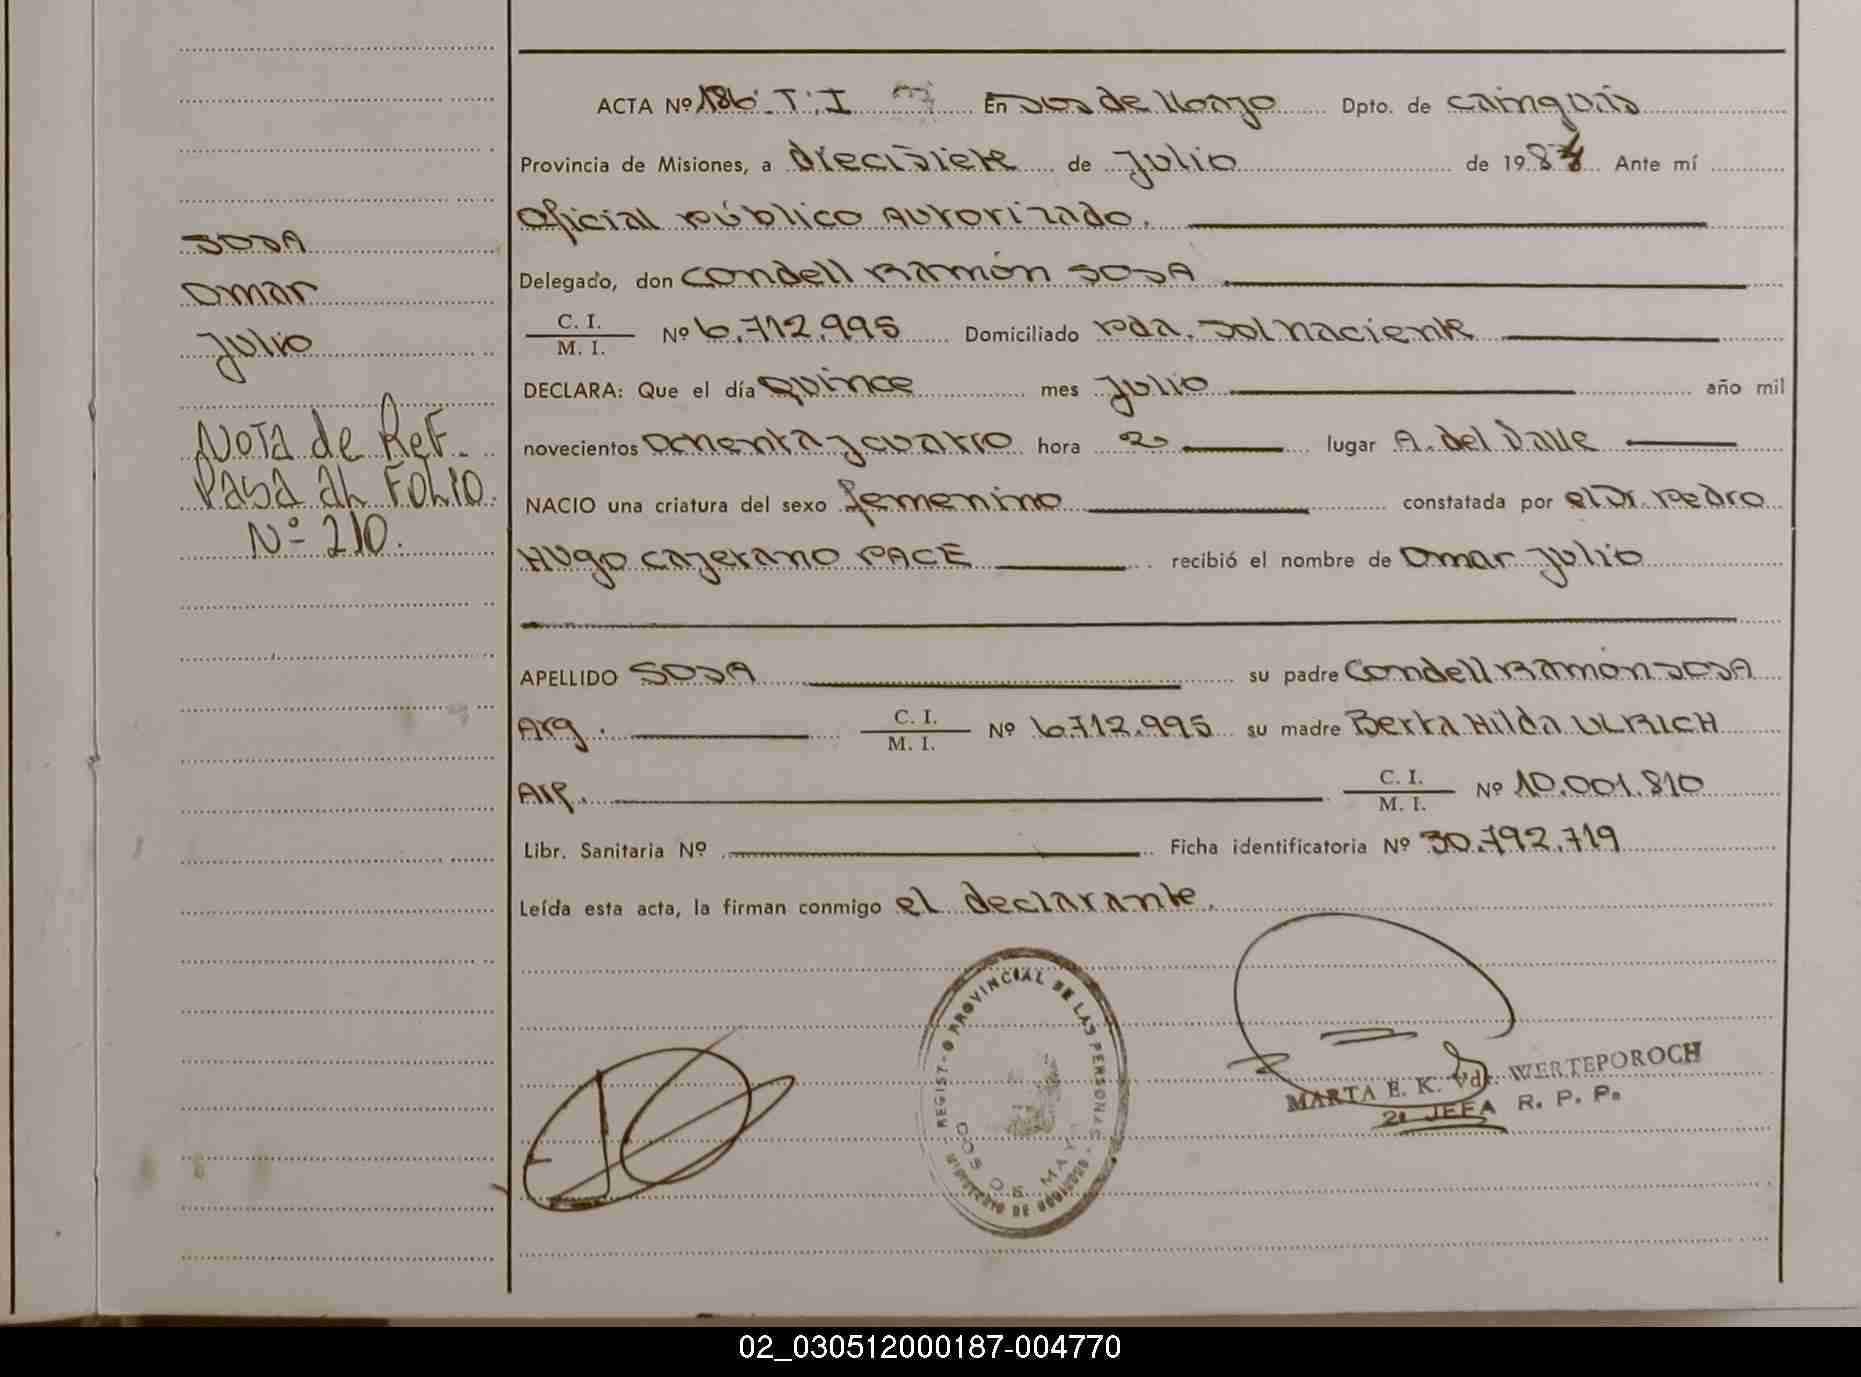 ACTA Nº 186. T. I En Dos de Mayo Dpto. de Cainguás
Provincia de Misiones, a diecisiete de Julio de 1984 Ante mí
Oficial público Autorizado.
Delegado, don Condell Ramón SOSA
C. I.
M. I. Nº 6.712.995 Domiciliado Pda. Sol naciente
DECLARA: Que el día quince mes Julio año mil
novecientos ochenta y cuatro hora 2 lugar A. del Valle
NACIO una criatura del sexo femenino constatada por el Dr. Pedro
Hugo Cayetano PACE recibió el nombre de Omar Julio
APELLIDO SOSA su padre Condell Ramón SOSA
Arg. C. I.
M. I. Nº 6.712.995 su madre Berta Hilda ULRICH
Arg. C. I.
M. I. Nº 10.001.810
Libr. Sanitaria Nº Ficha identificatoria Nº 30.792.719
Leída esta acta, la firman conmigo el declarante.
SOSA
Omar
Julio
Nota de Ref.
Pasa al Folio
Nº 210.
REGISTRO PROVINCIAL DE LAS PERSONAS
DOS DE MAYO
MINISTERIO DE GOBIERNO
MARTA E. K. Vda. WERTEPOROCH
2a JEFA R. P. P.
02_030512000187-004770